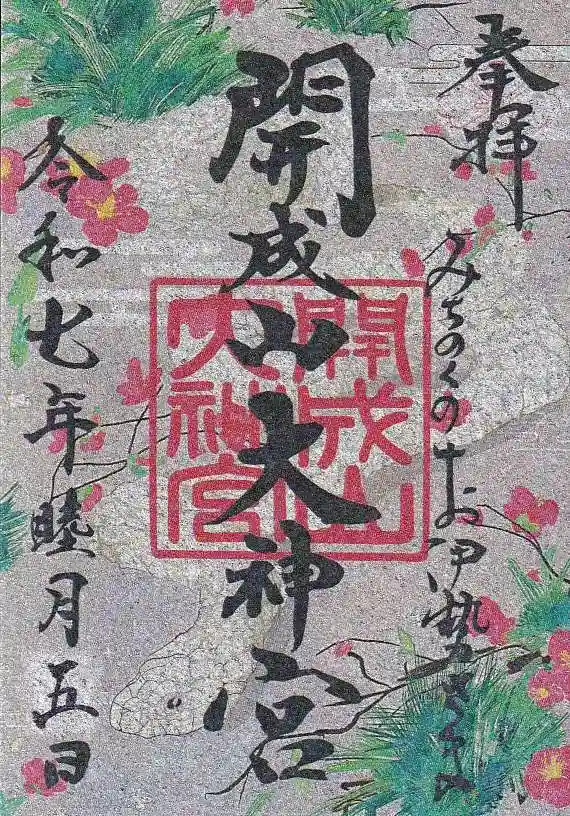 奉拝
みちのくのおお伊勢さま
開成山大神宮
開成山
大神宮
令和七年睦月五日